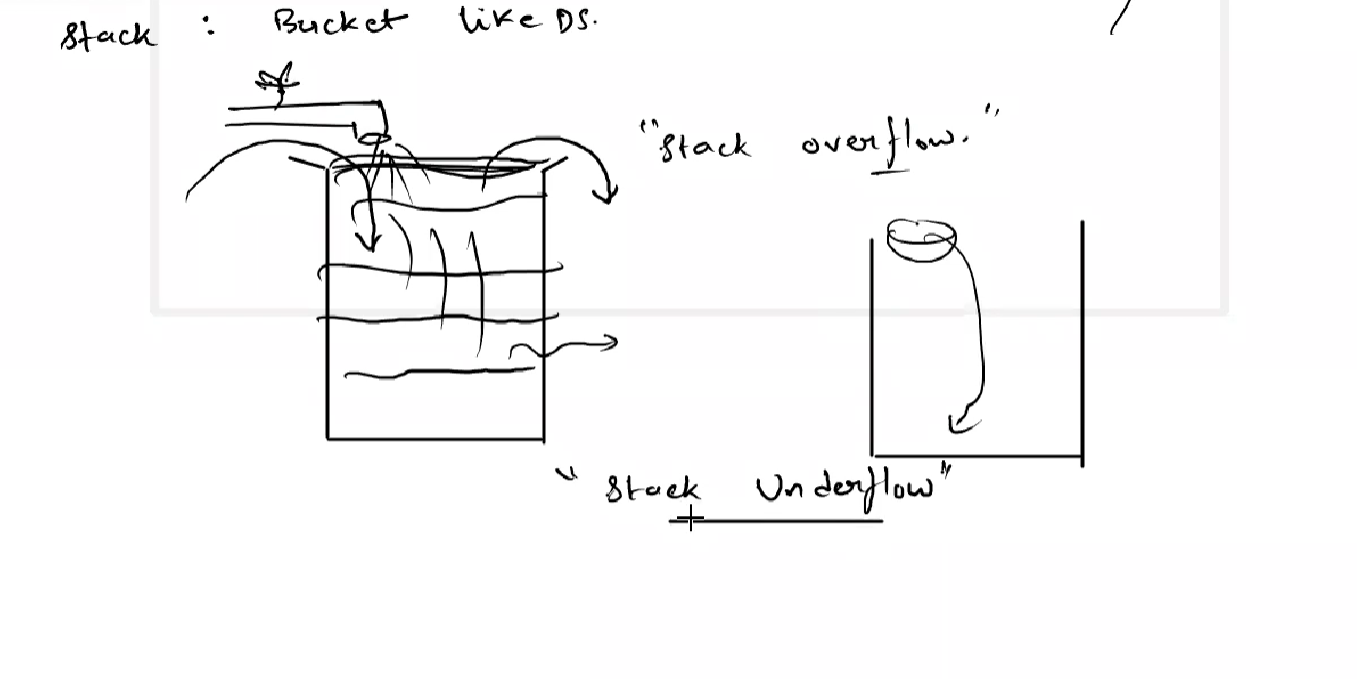 Stack : Bucket like DS.
"Stack overflow."
"Stack Underflow"